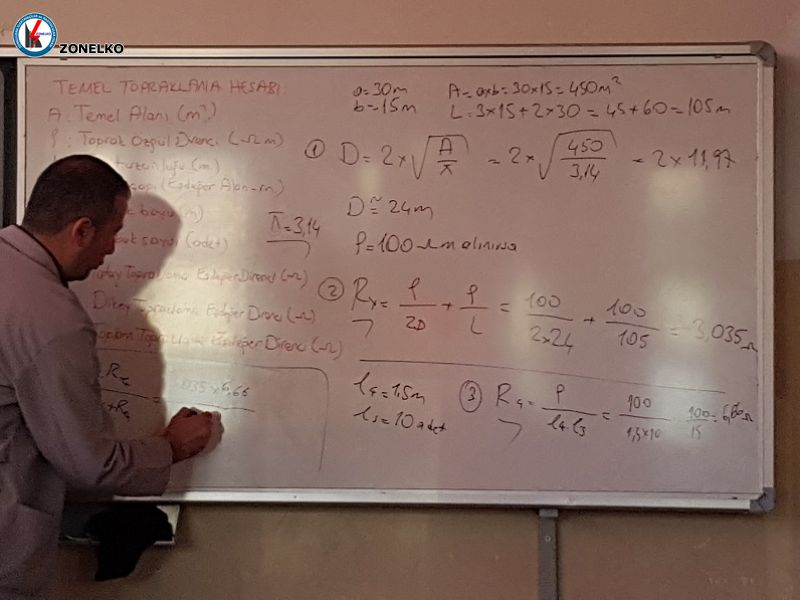 ZONELKO
TEMEL TOPRAKLAMA HESABI:
A: Temel Alanı (m²)
ρ: Toprak Özgül Direnci (Ωm)
uzunluğu (m)
çapı (Eşdeğer Alan-m)
boyu (m)
sayısı (adet)
Yatay Topraklama Eşdeğer Direnci (Ω)
Dikey Topraklama Eşdeğer Direnci (Ω)
Toplam Topraklama Eşdeğer Direnci (Ω)
π=3,14
a=30m
b=15m
A=axb=30x15=450m²
L:3x15+2x30=45+60=105m
① D=2x√(A/π) = 2x√(450/3,14) = 2x11,97
D≅24m
ρ=100Ωm alınırsa
② Rₓ = ρ/2D + ρ/L = 100/2x24 + 100/105 = 3,035Ω
l₄=1,5m
l₅=10 adet
③ R₉ = ρ/l₄.l₅ = 100/1,5x10 = 100/15 = 6,66Ω
035x6,66